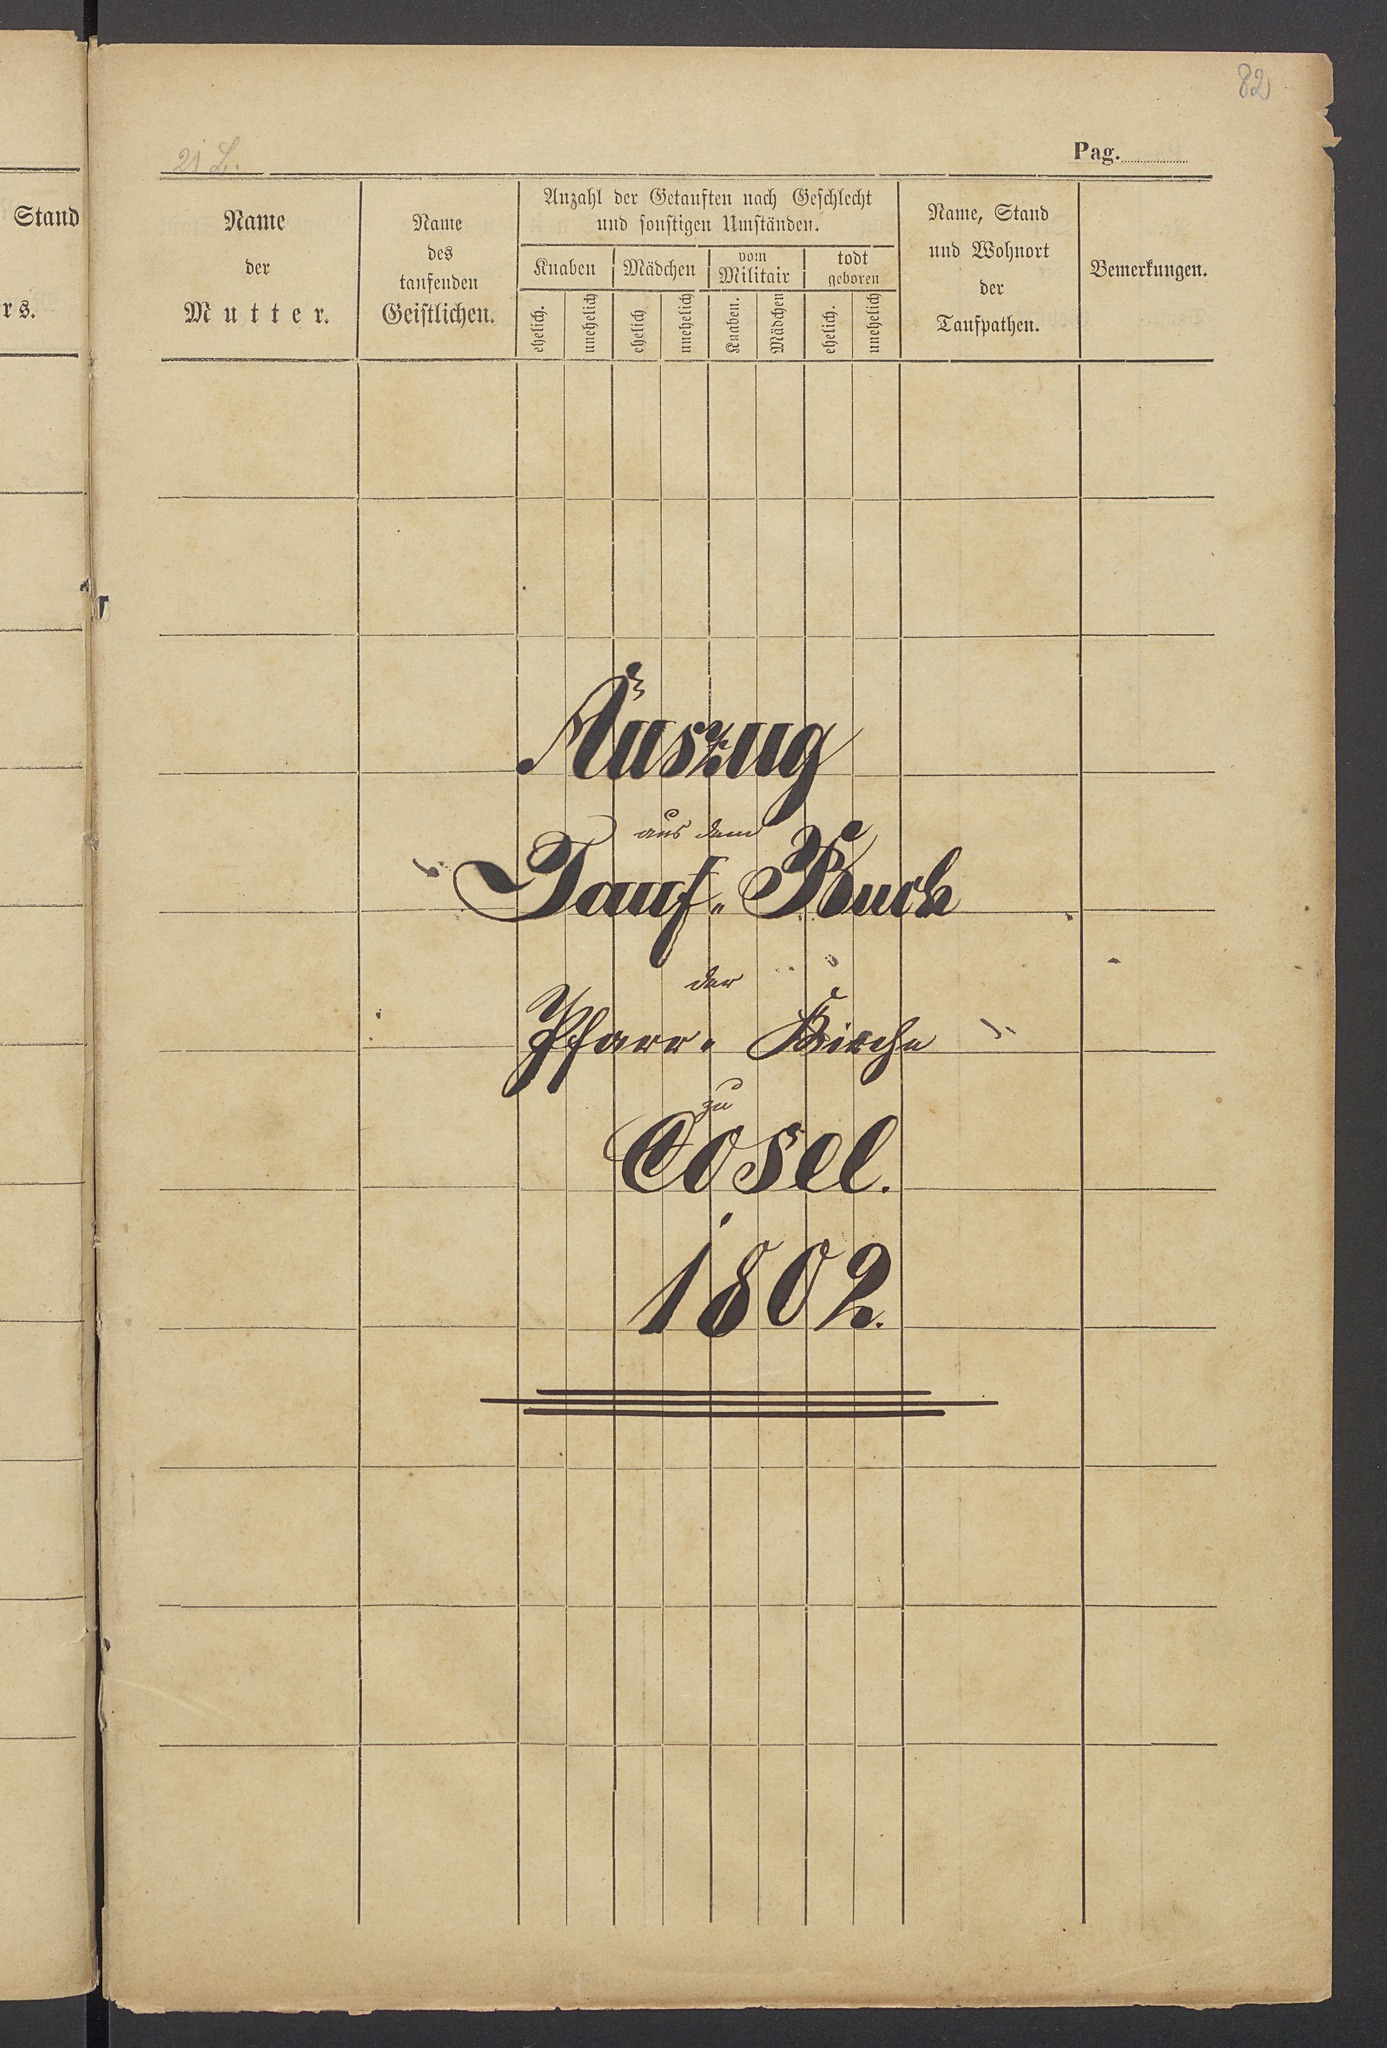 82
21 L.
Pag.
Stand
rs.
Name
der
Mutter.
Name
des
taufenden
Geistlichen.
Anzahl der Getauften nach Geschlecht
und sonstigen Umständen.
Knaben
Mädchen
vom
Militair
todt
geboren
ehelich.
unehelich
ehelich
unehelich
Knaben.
Mädchen
ehelich.
unehelich
Name, Stand
und Wohnort
der
Taufpathen.
Bemerkungen.
Auszug
aus dem
Tauf-Buch
der
Pfarr-Kirche
zu
Cosel.
1802.